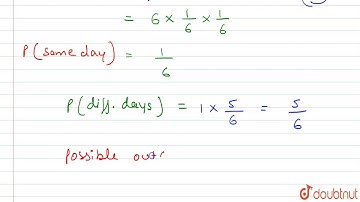 = 6 × 1/6 × 1/6
P(same day) = 1/6
P(diff. days) = 1 × 5/6 = 5/6
possible out
doubtnut